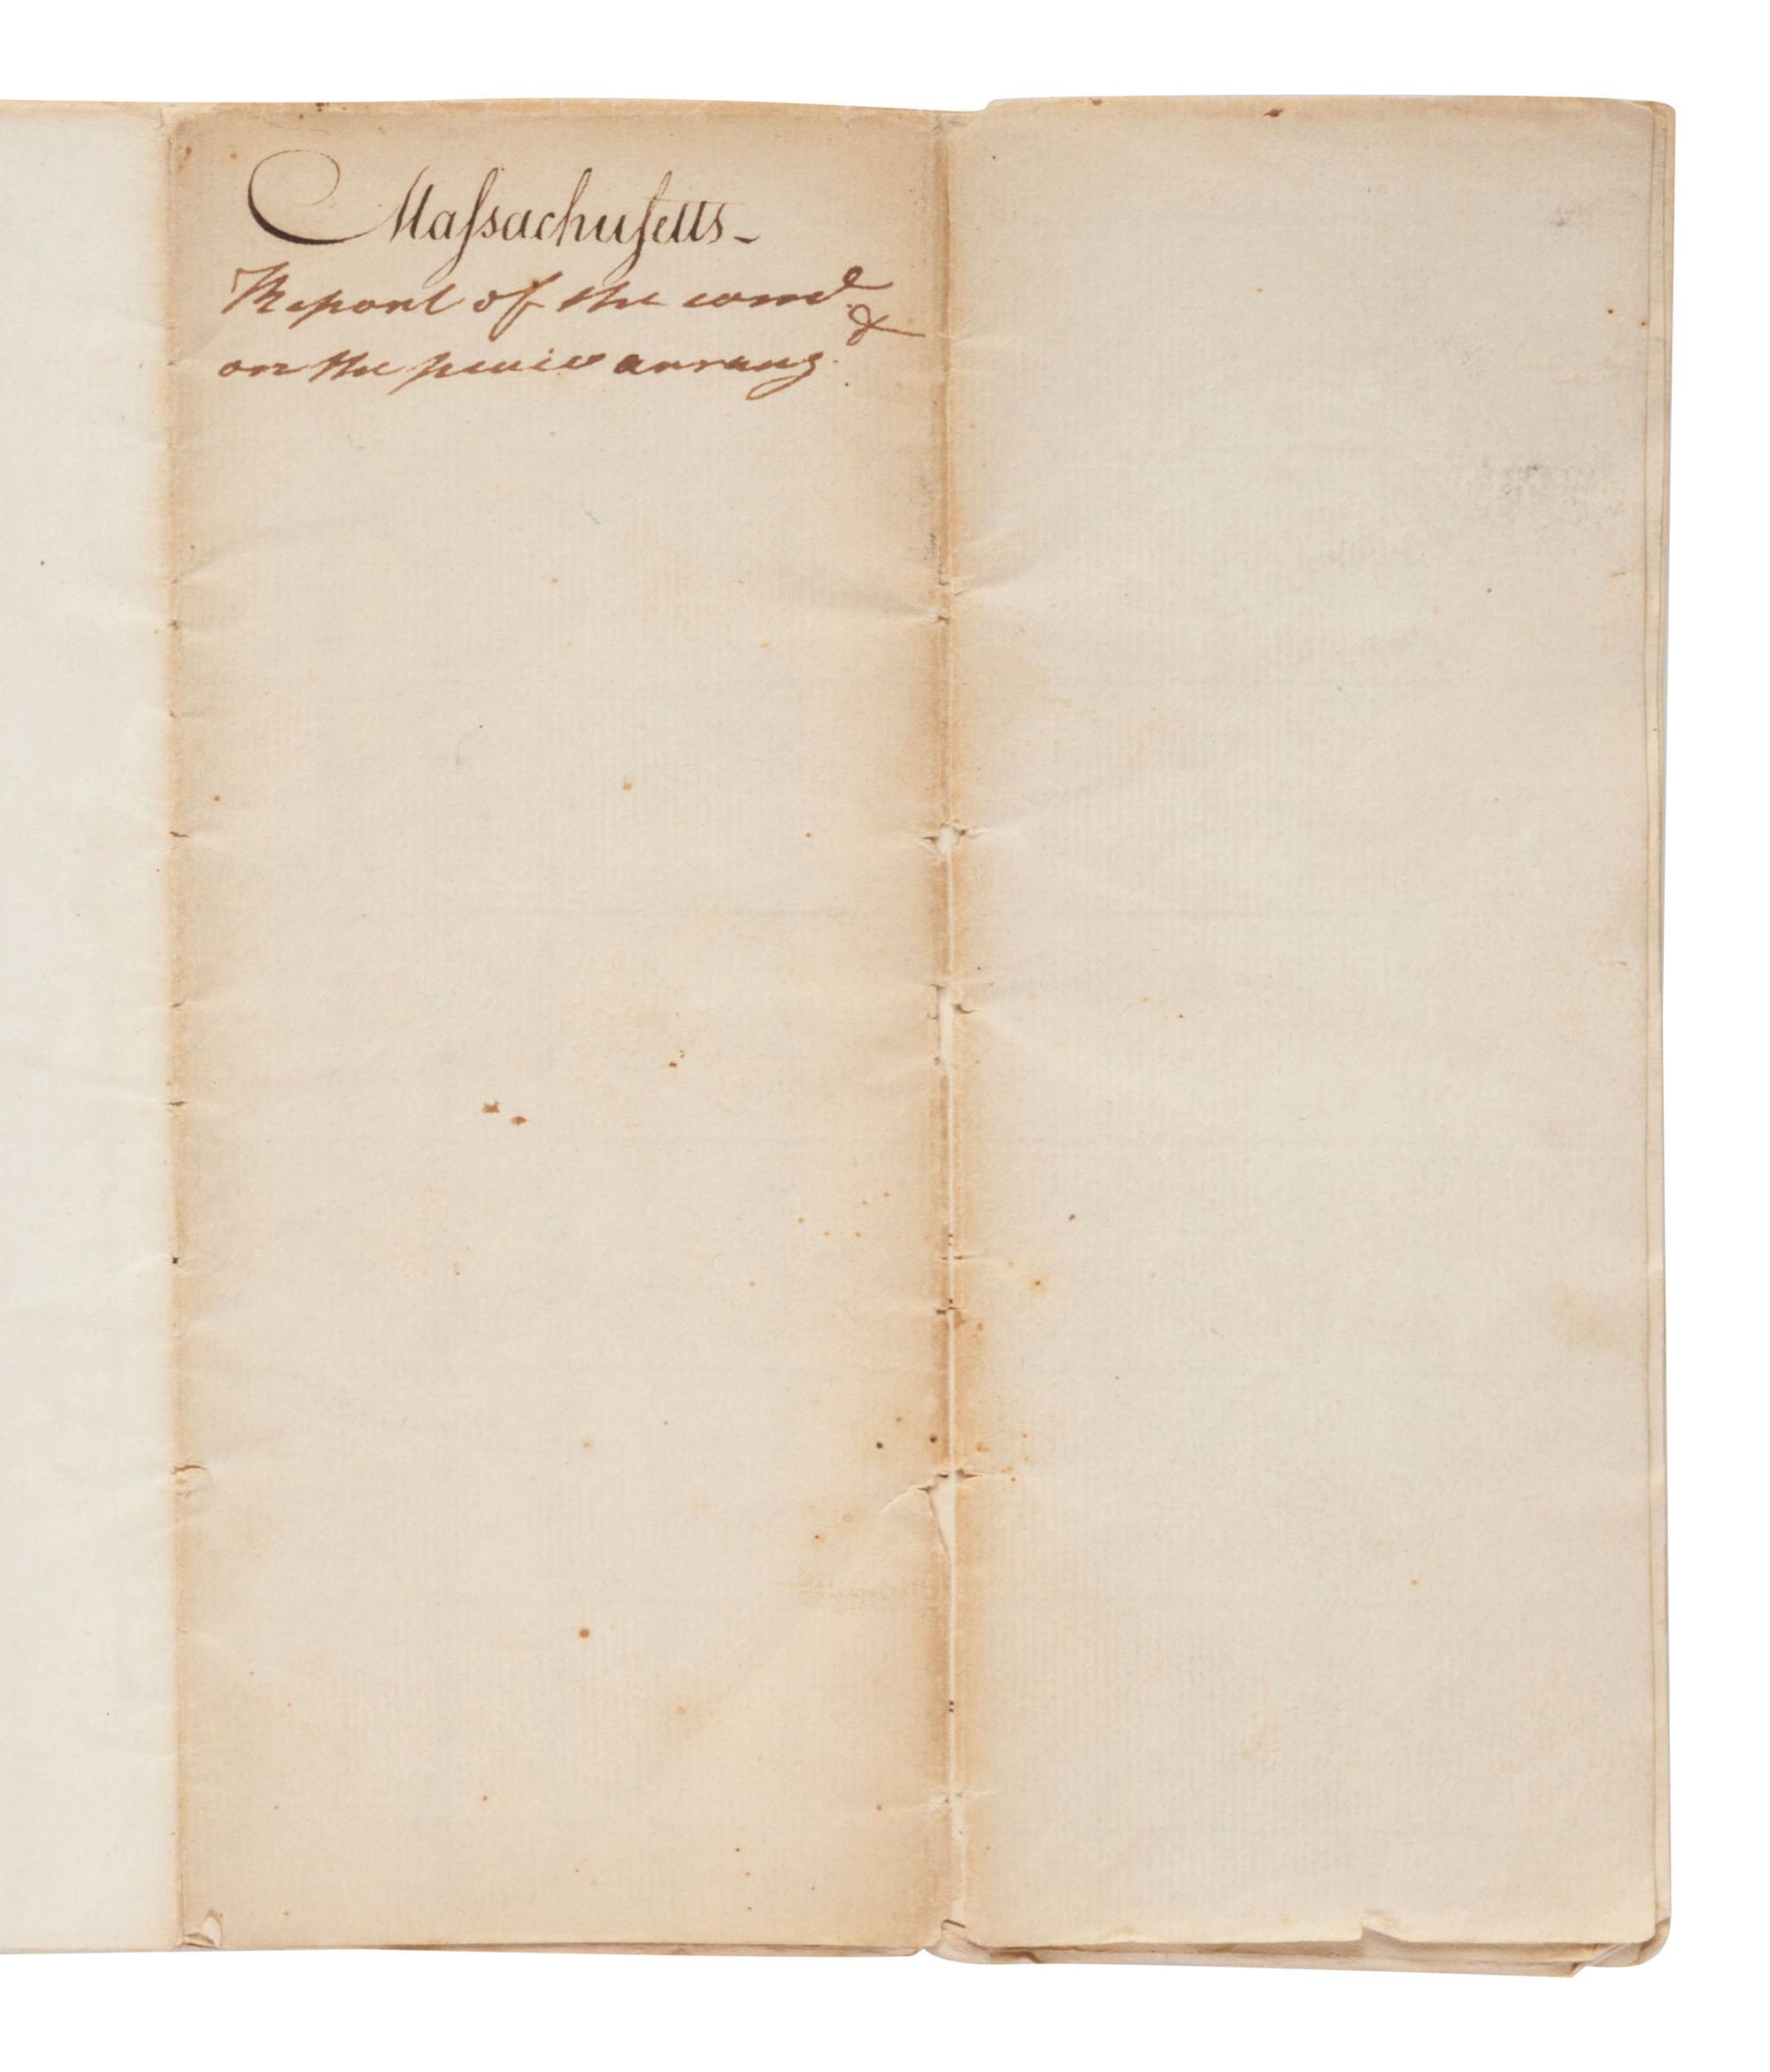 Maſsachuſetts -
Report of the &
on the peace arrang.